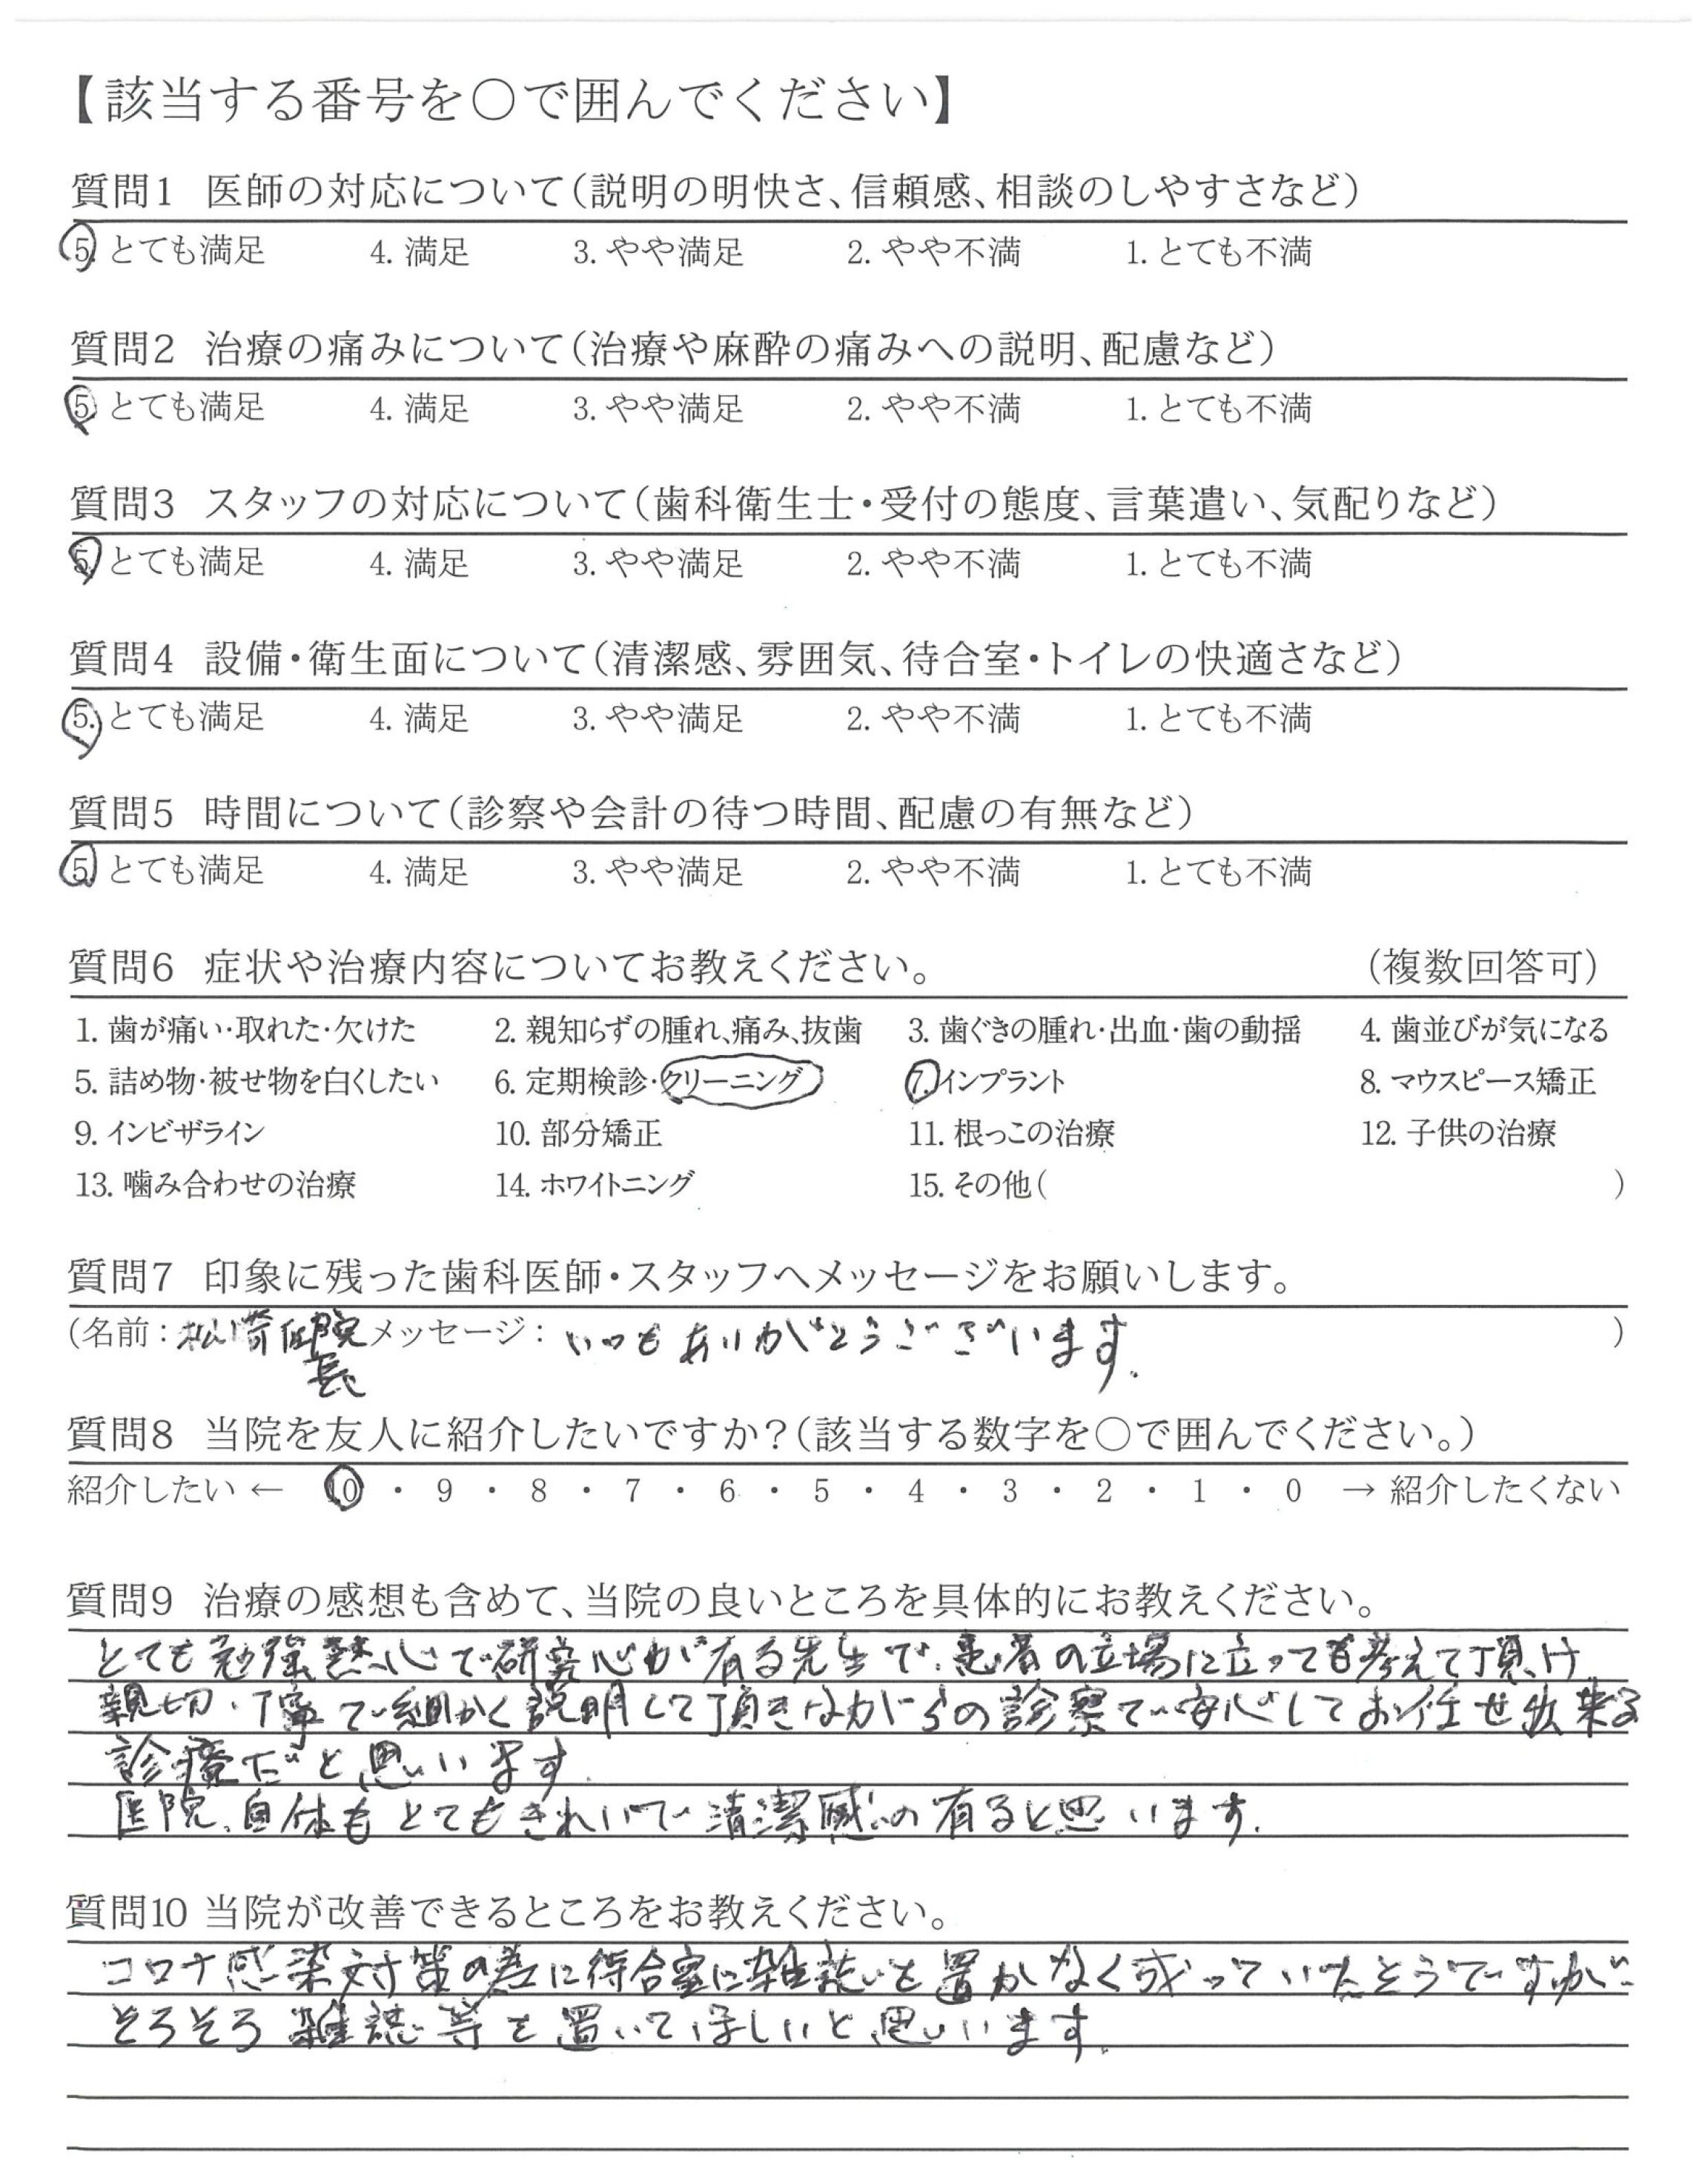 【該当する番号を○で囲んでください】
質問1 医師の対応について(説明の明快さ、信頼感、相談のしやすさなど)
5. とても満足 4. 満足 3. やや満足 2. やや不満 1. とても不満
質問2 治療の痛みについて(治療や麻酔の痛みへの説明、配慮など)
5. とても満足 4. 満足 3. やや満足 2. やや不満 1. とても不満
質問3 スタッフの対応について(歯科衛生士・受付の態度、言葉遣い、気配りなど)
5. とても満足 4. 満足 3. やや満足 2. やや不満 1. とても不満
質問4 設備・衛生面について(清潔感、雰囲気、待合室・トイレの快適さなど)
5. とても満足 4. 満足 3. やや満足 2. やや不満 1. とても不満
質問5 時間について(診察や会計の待つ時間、配慮の有無など)
5. とても満足 4. 満足 3. やや満足 2. やや不満 1. とても不満
質問6 症状や治療内容についてお教えください。 (複数回答可)
1. 歯が痛い・取れた・欠けた 2. 親知らずの腫れ、痛み、抜歯 3. 歯ぐきの腫れ・出血・歯の動揺 4. 歯並びが気になる
5. 詰め物・被せ物を白くしたい 6. 定期検診・クリーニング 7. インプラント 8. マウスピース矯正
9. インビザライン 10. 部分矯正 11. 根っこの治療 12. 子供の治療
13. 噛み合わせの治療 14. ホワイトニング 15. その他( )
質問7 印象に残った歯科医師・スタッフへメッセージをお願いします。
(名前: 松崎 院長 メッセージ: いつもありがとうございます。 )
質問8 当院を友人に紹介したいですか?(該当する数字を○で囲んでください。)
紹介したい ← 10 ・ 9 ・ 8 ・ 7 ・ 6 ・ 5 ・ 4 ・ 3 ・ 2 ・ 1 ・ 0 → 紹介したくない
質問9 治療の感想も含めて、当院の良いところを具体的にお教えください。
とても勉強熱心で研究心が有る先生で、患者の立場に立って考えて頂け
親切・丁寧で細かく説明して頂きながらの診察で安心してお任せ出来る
診療だと思います
医院、自体もとてもきれいで清潔感の有ると思います。
質問10 当院が改善できるところをお教えください。
コロナ感染対策の為に待合室に雑誌を置かなく成っていたそうですが
そろそろ雑誌等を置いてほしいと思います。